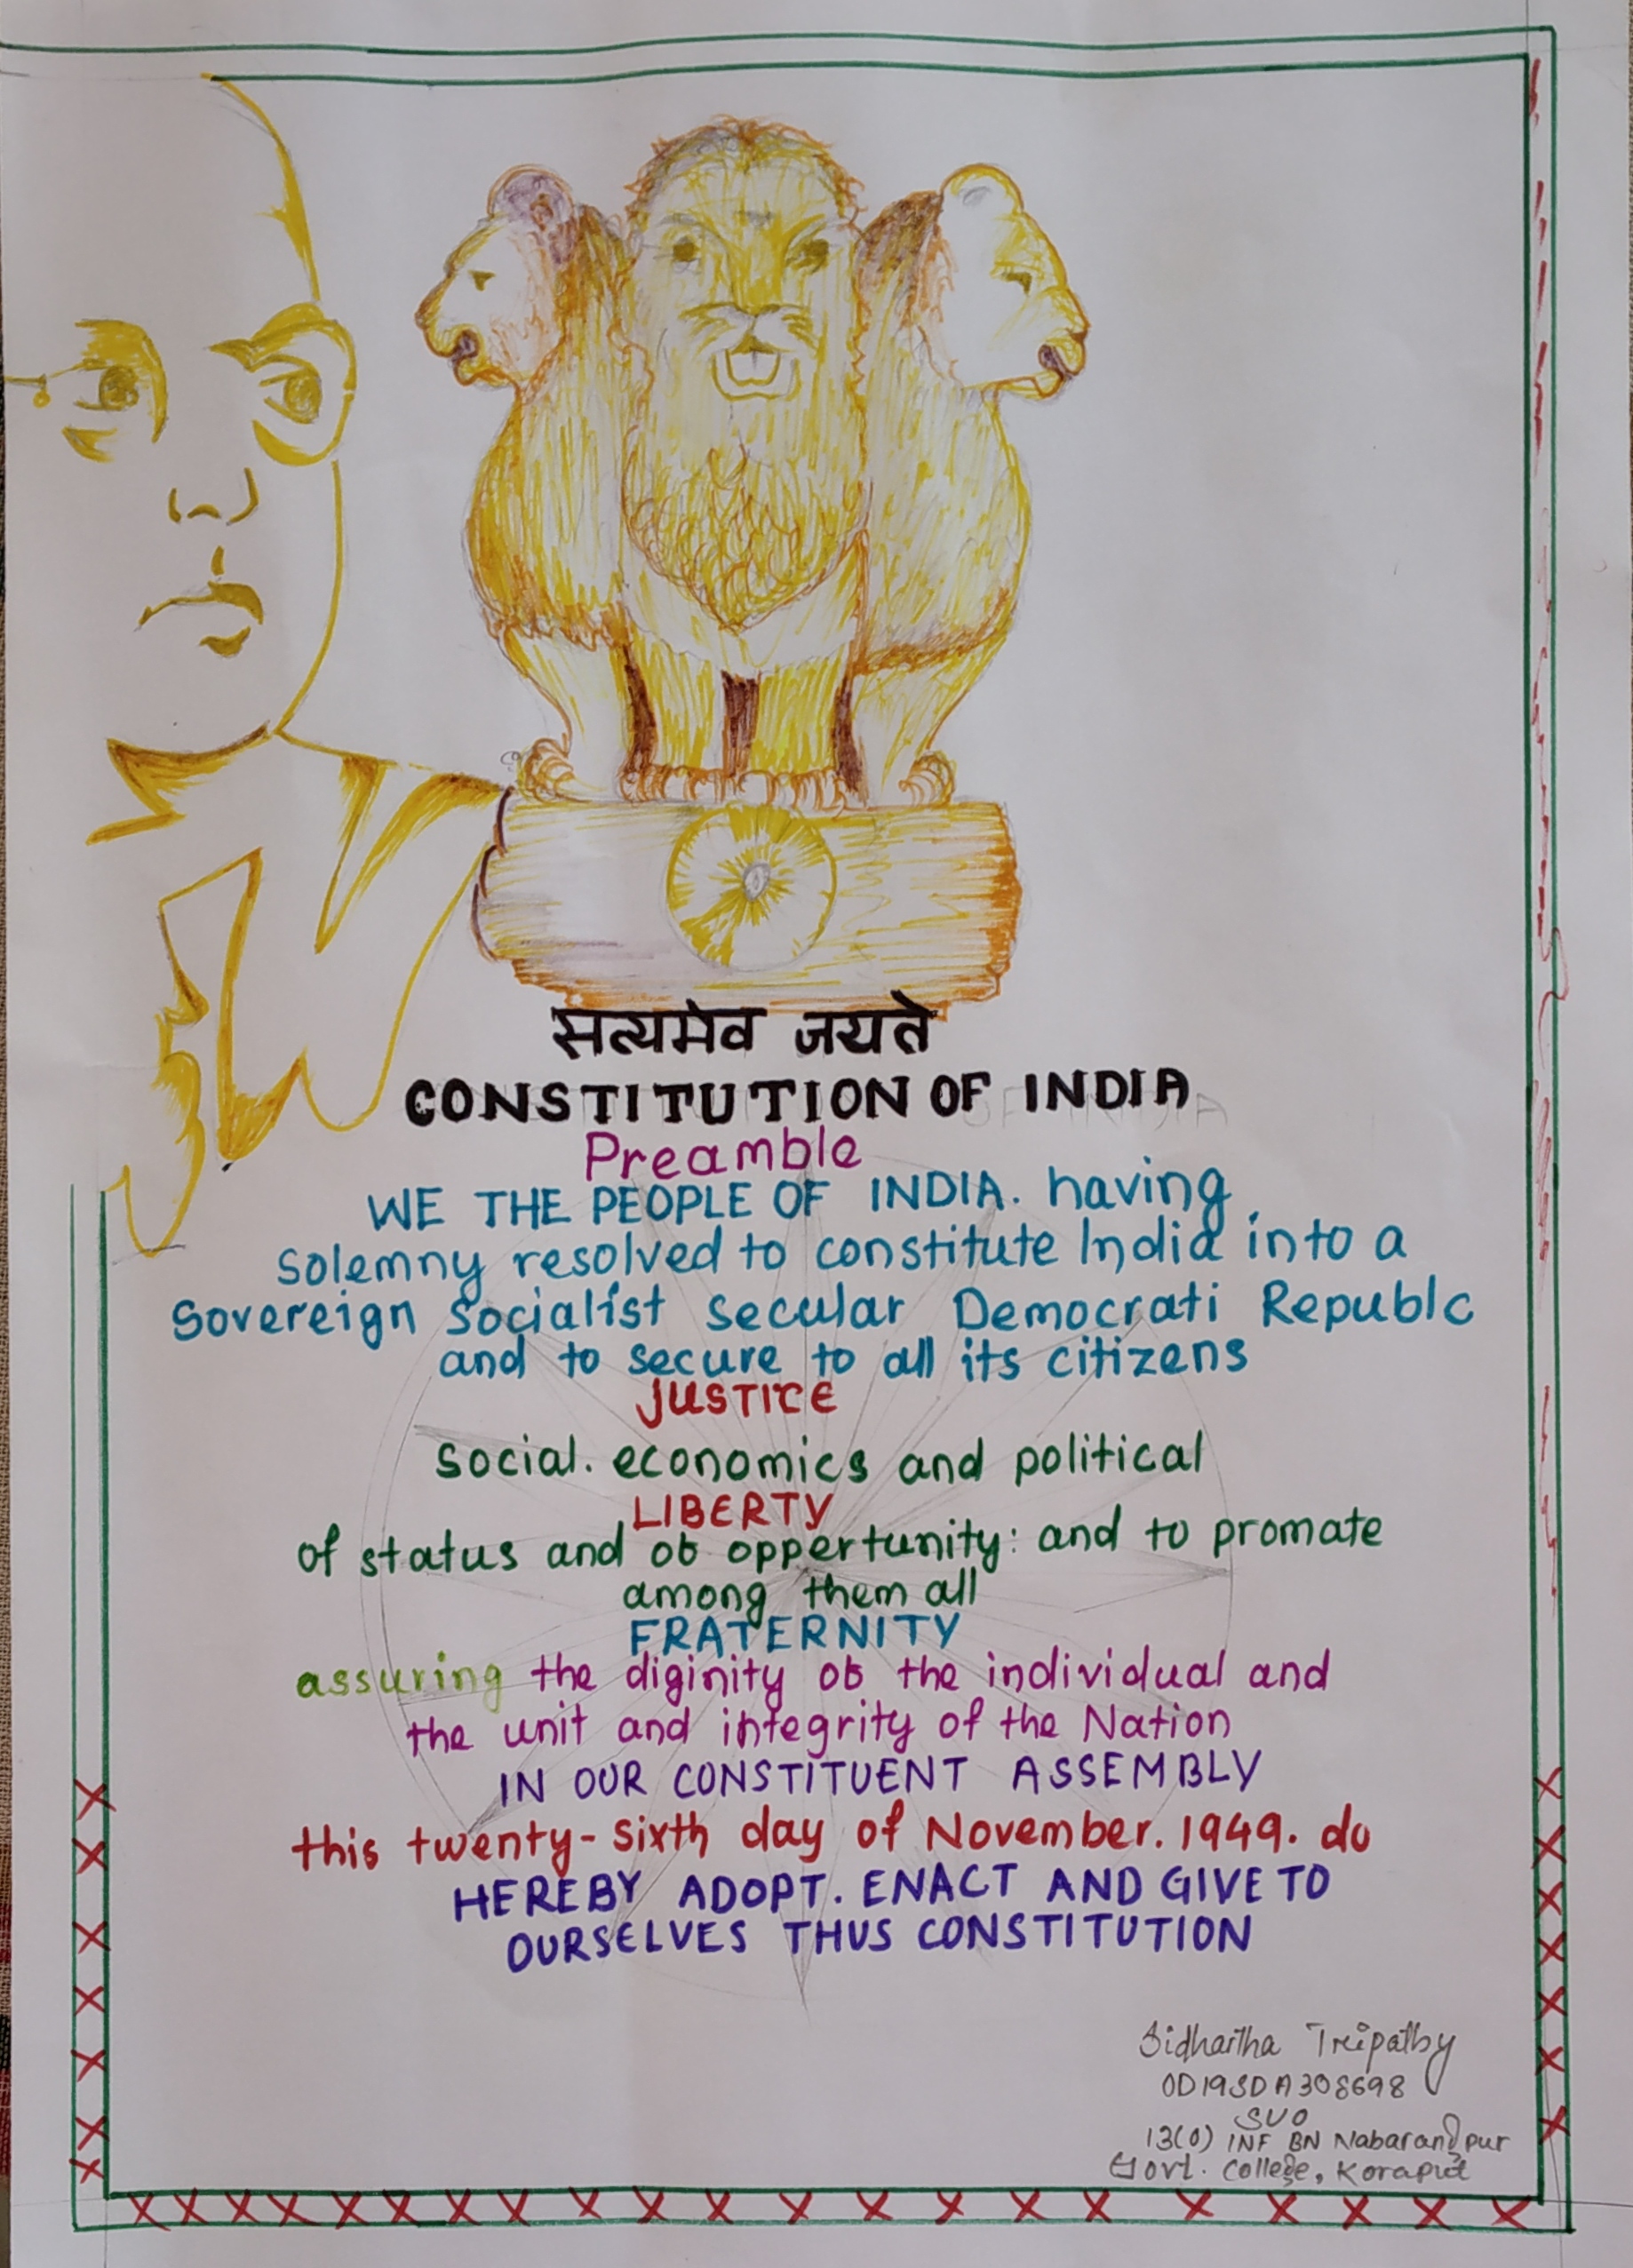 सत्यमेव जयते
CONSTITUTION OF INDIA
Preamble
WE THE PEOPLE OF INDIA. having
solemny resolved to constitute India into a
Sovereign Socialist secular Democrati Republc
and to secure to all its citizens
JUSTICE
social. economics and political
LIBERTY
of status and ob oppertunity: and to promate
among them all
FRATERNITY
assuring the diginity ob the individual and
the unit and integrity of the Nation
IN OUR CONSTITUENT ASSEMBLY
this twenty-sixth day of November. 1949. do
HEREBY ADOPT. ENACT AND GIVE TO
OURSELVES THUS CONSTITUTION
Sidhartha Tripathy
OD19SDA308698
SUO
13(O) INF BN Nabarangpur
Govt. College, Koraput